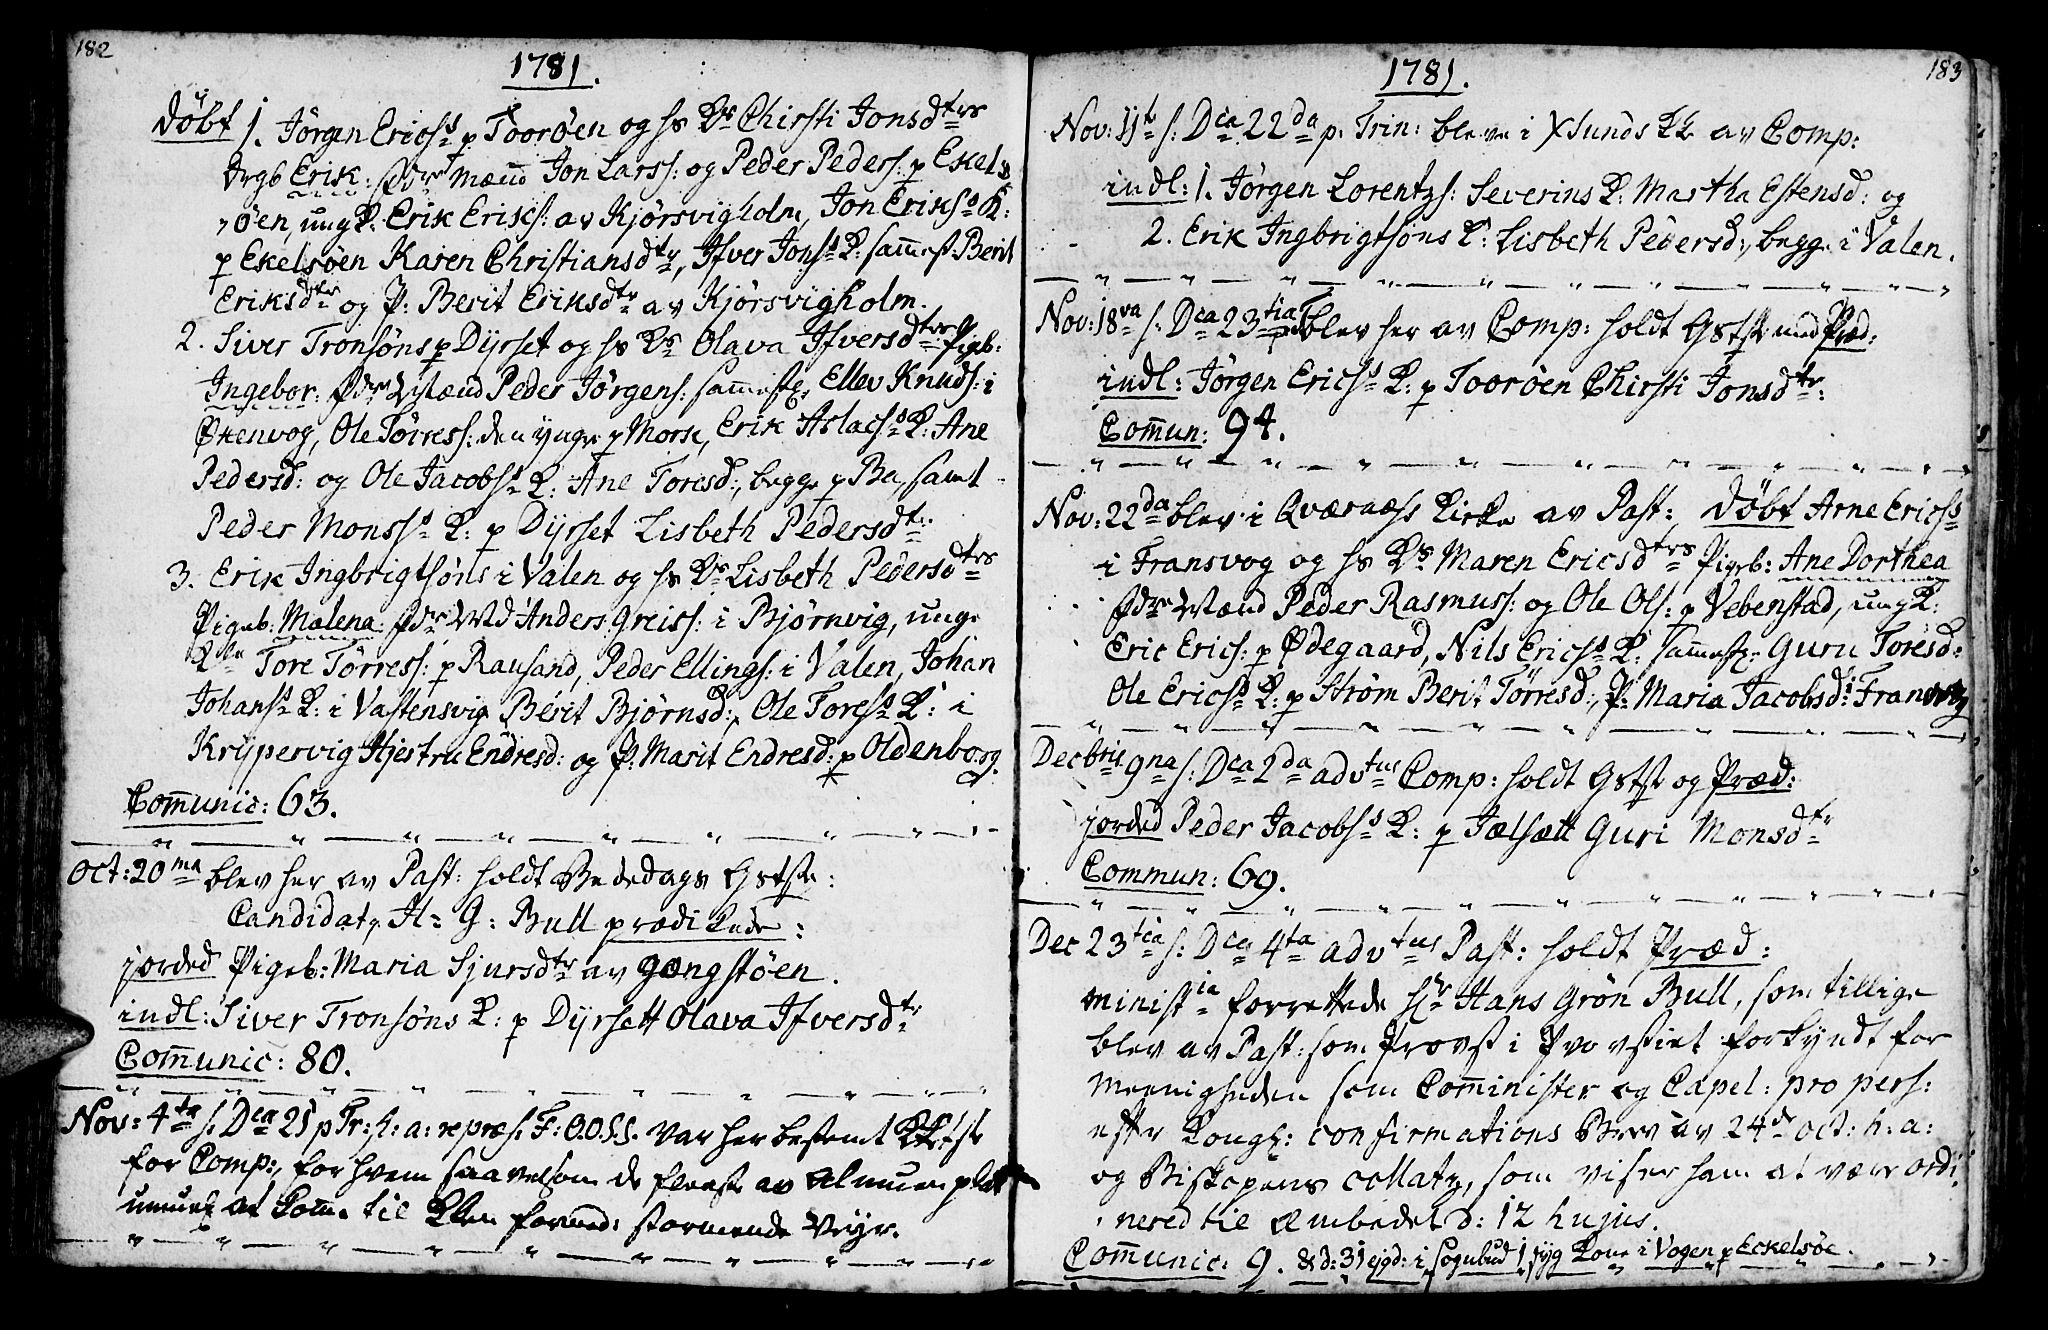 182
1781.
Döbt 1. Jörgen Erics: p Toorøen og hs Ks Chirsti Jonsdtrs
drgb Erik: fdre Mænd Jon Lars: og Peder Peders: p Ekels
øen, ung K: Erik Erics: av Kjørsvigholm, Jon Eriks: K:
p Ekelsøen Karen Christiansdtr, Ifver Jons: K: samest Berit
Eriksdtr og P: Berit Eriksdtr av Kjørsvigholm.
2. Siver Tronsøns p Dyrset og hs Ks Olava Ifversdtrs Pigb:
Ingebor: fdre Mænd Peder Jörgens: samest, Ellev Knuds: i
Økenvog, Ole Törres: den ynge p Morse, Erik Aslacs: K: Ane
Pedersd: og Ole Jacobs: K: Ane Toresd:, begge p Bæ, samt
Peder Mons: K: p Dyrset Lisbeth Pedersdtr
3. Erik Ingbrigtsøns i Valen og hs Ks Lisbeth Pedersdtrs
Pigeb: Malena: fdre Md Anders Greiss: i Bjørnvig, unge
Kle Tore Törress: p Rausand, Peder Ellings: i Valen, Johan
Johans: K: i Vastensvig Berit Bjørnsd:, Ole Tores: K: i
Krypervig Hjestru Endresd: og P: Marit Endresd: p Oldenborg.
Comunic: 63.
Oct: 20ma blev her av Past: holdt Bededags Gstste:
Candidat, H= G: Bull prædikede:
jorded Pigeb: Maria Sjursdtr av Gangstøen.
indl: Siver Tronsøns K: p Dyrsett Olava Ifversdtr
Comunic: 80.
Nov: 4ta s: Dca 21 p Tr: h: a: repræs: F: O.O.S.S. var her bestemt
for Comp:, for hvem saavelsom de fleeste av Almuen
umuel at kome til Klen formed: stormende Veyr.
183
1781.
Nov: 11te s: Dca 22da p: Trin: bleve i Xsunds KK av Comp:
indl: 1. Jörgen Lorentzs: Severins K: Martha Estensd: og
2. Erik Ingbrigtsøns K: Lisbeth Pedersd:, begge i Valen.
Nov: 18va s: Dca 23tia p T blev her av Comp: holdt Gstste med Præd:
indl: Jörgen Erics: K: p Toorøen Chirsti Jonsdtr:
Comun: 94.
Nov: 22da blev i Qværnæs Kirke av Past: Döbt Arne Erics:
i Fransvog og hs Ks Maren Ericsdtrs Pigeb: Ane Dorthea
fdre Mænd Peder Rasmus: og Ole Ols: p Vebenstad, ung K:
Eric Erics: p Ødegaard, Nils Erics: K: samest: Guru Toresd:
Ole Erics: K: p Strøm Berit Törresd:, P: Maria Jacobsd: Fransvog
Decbris 9na s: Dca 2da advtus Comp: holdt Gstste og Præd:
jorded Peder Jacobs: K: p Jælsætt Guri Monsdtr
Commun: 69.
Dec 23tia s: Dca 4ta advtus Past: holdt Præd:
ministia forrettede Hr Hans Grön Bull, som tillige
blev av Past: som Provst i Provstiet forkyndt for
Meenigheden som Cominister og Capel: pro pers:
efter Kongl: confirmations Brev av 24de oct: h: a:
og Biskopens collatz, som viser ham at være ordi
nered til Embedet d: 12 hujus.
Comunic: 9. & d: 31 ejgd: i Sognebud 1 syg Kone i Vogen p Eckelsöe.